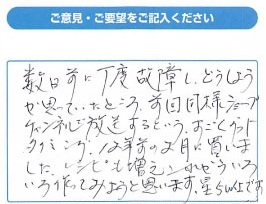 ご意見・ご要望をご記入ください
数日前に丁度故障し、どうしよう
か思っていたところ、前回同様ショップ
チャンネルで放送するという、すごくグット
タイミング、12年前の2月に買いまし
した。レシピも増え これでいろ
いろ作ってみようと思います。星5つです